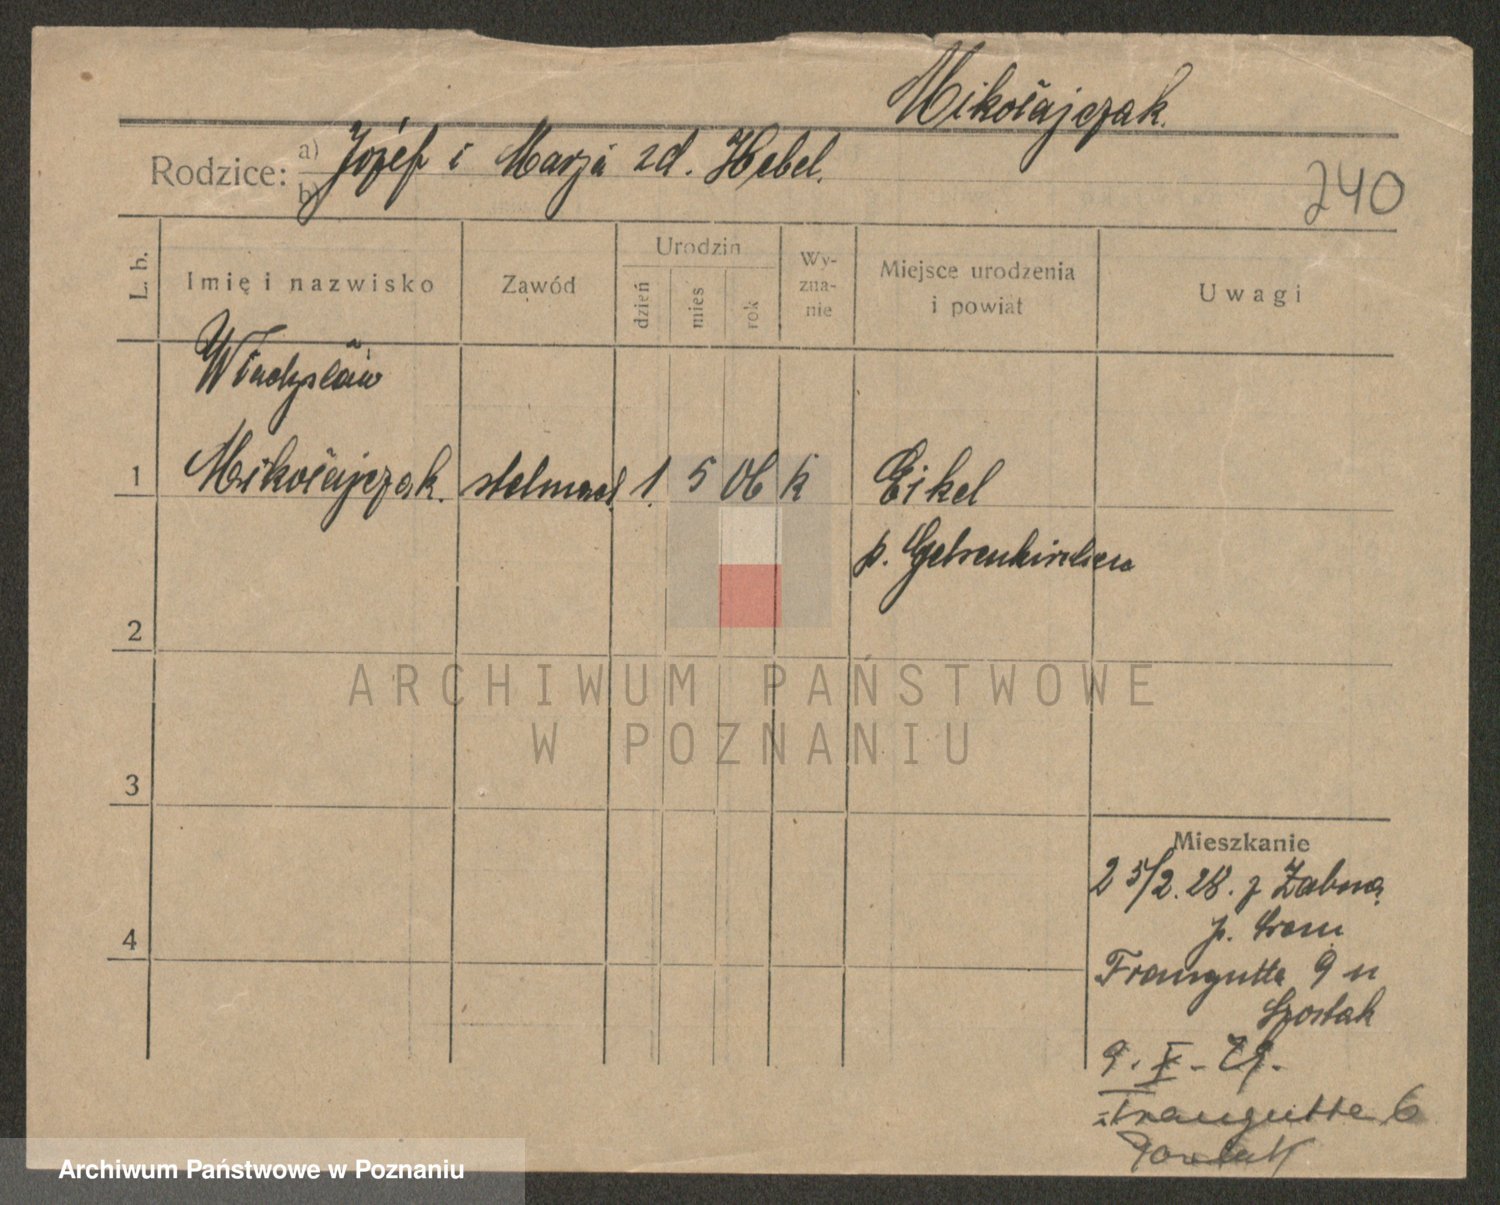 Mikołajczak.
Rodzice: a) b) Józef i Marja zd. Hebel.
240
L. b.
Imię i nazwisko
Zawód
Urodzin
dzień
mies
rok
Wy-
zna-
nie
Miejsce urodzenia
i powiat
Uwagi
Władysław
1 Mikołajczak. stelmach 1. 5 06 k Eikel
p. Gelsenkirchen
2
3
4
Mieszkanie
25/2. 28. z Zabna
p. Śrem
Traugutta 9 u
Szostak
9. X - 29.
Traugutta 6
ARCHIWUM PAŃSTWOWE
W POZNANIU
Archiwum Państwowe w Poznaniu